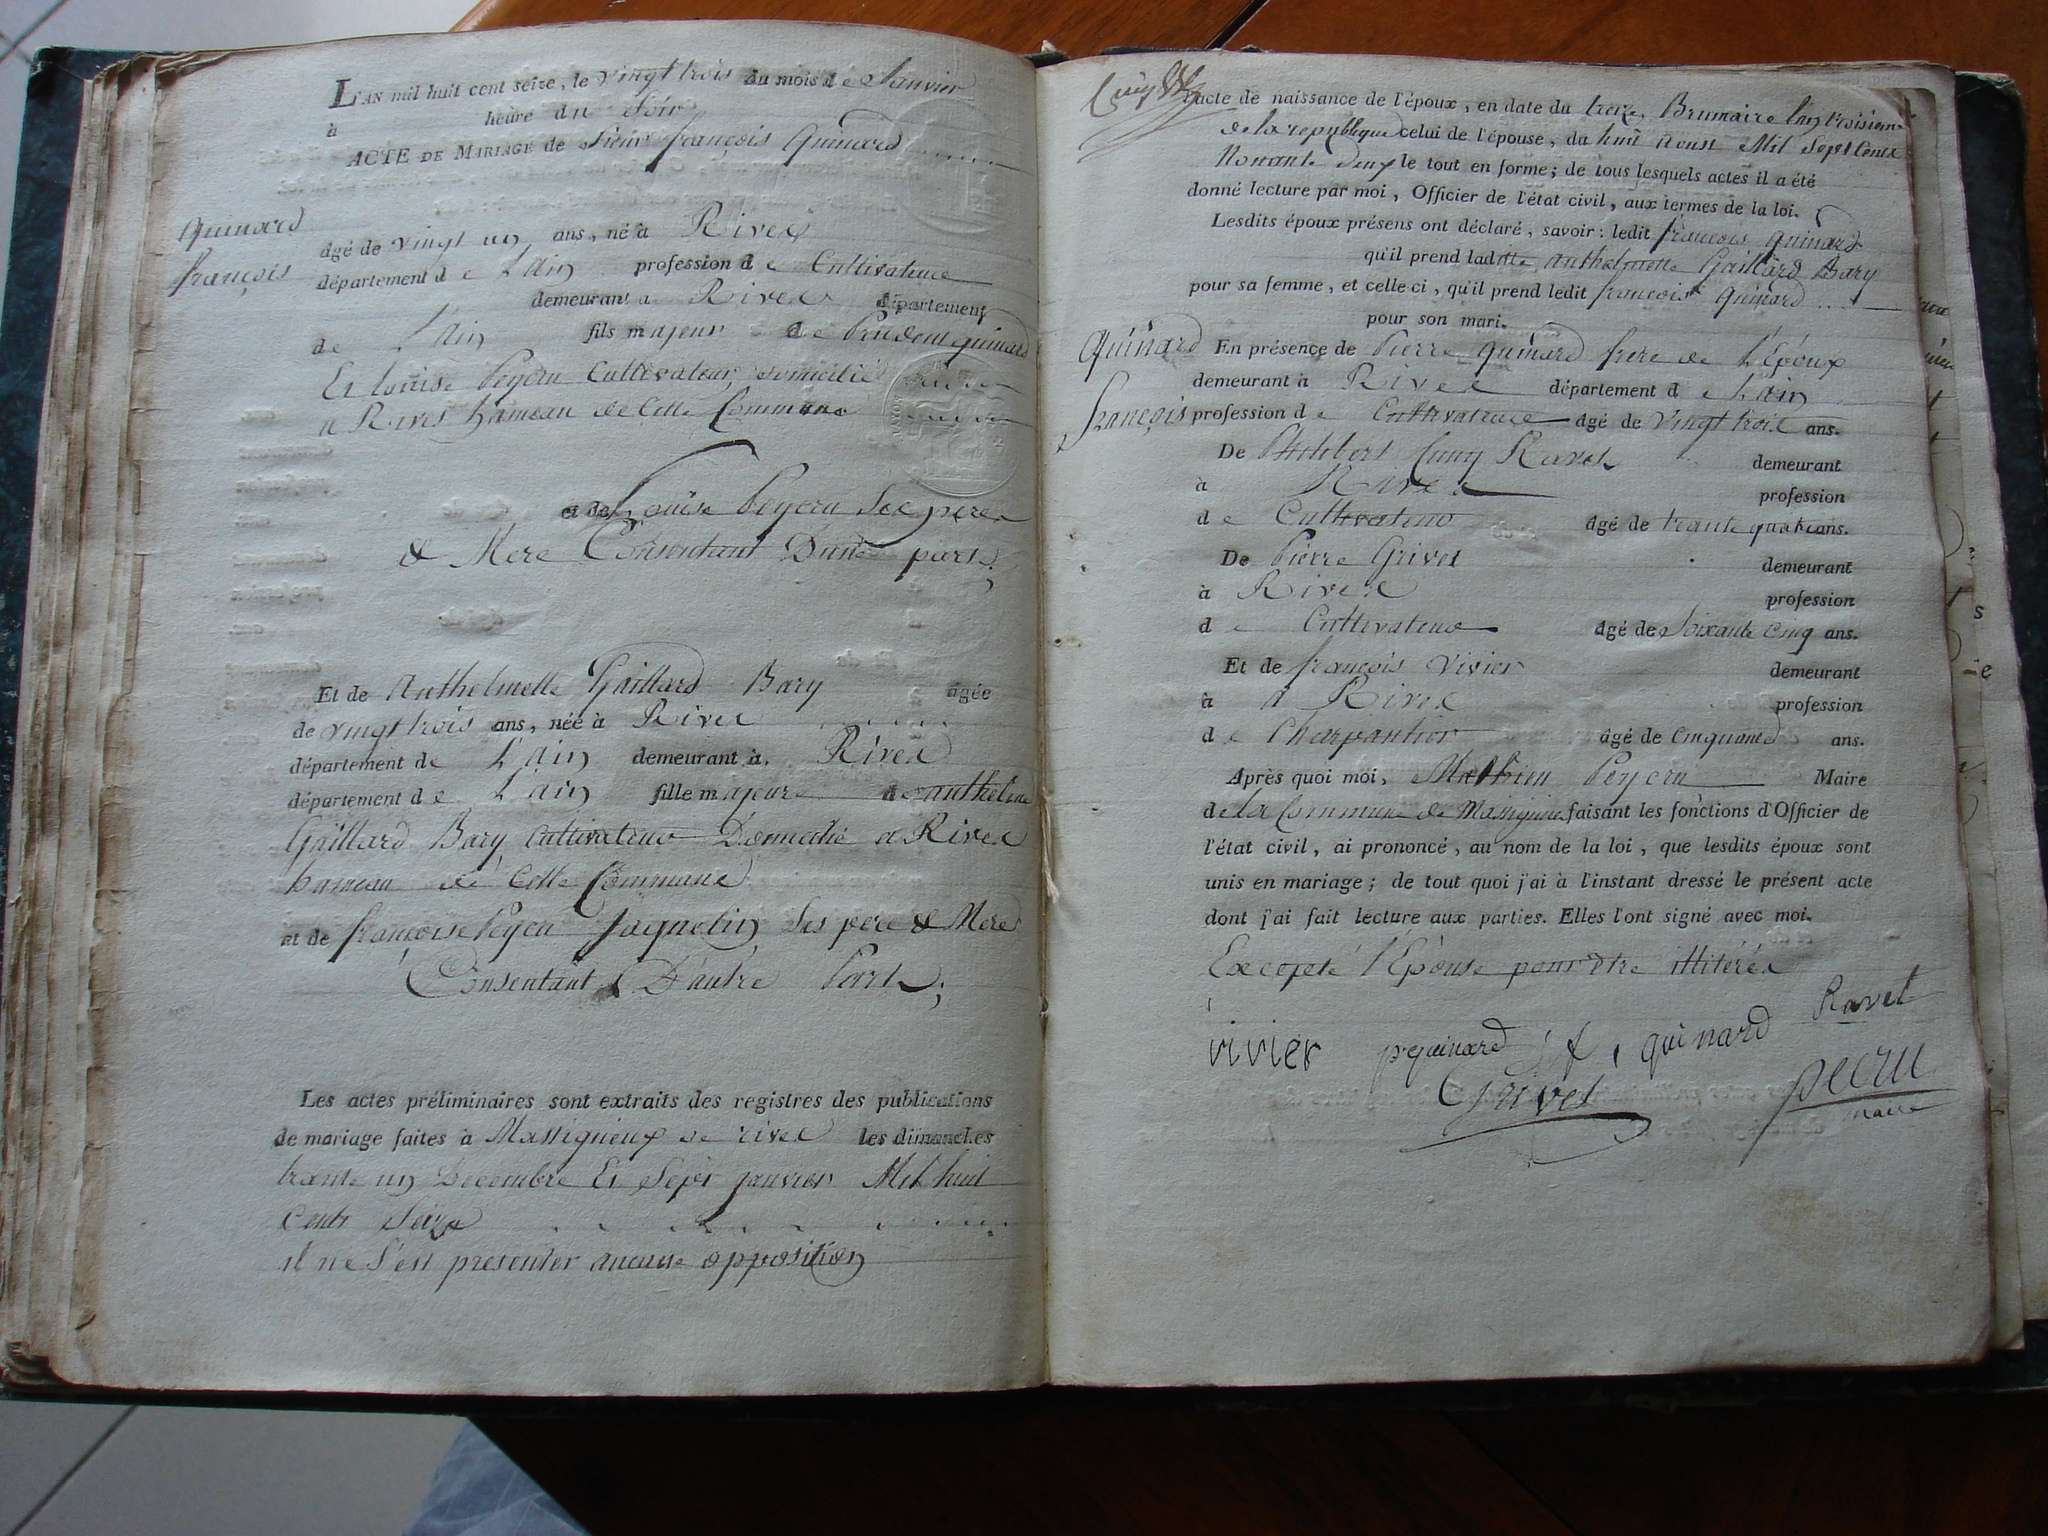 L'AN mil huit cent seize, le vingt trois du mois de Janvier
à heure du Soir
ACTE DE MARIAGE de Sieur françois Quinard
Quinard
françois
âgé de vingt un ans, né à Rives
département de L'ain profession de Cultivateur
demeurant à Rives département
de L'ain fils majeur de Prudent quinard
Et louise peycru Cultivateur domicilié
a Rives hameau de Cette Commune
et de Louise peycru Ses pere
& Mere Consentant D'une part;
Et de Anthelmette Gaillard Bary âgée
de vingt trois ans, née à Rives
département de L'ain demeurant à Rives
département de L'ain fille majeure de anthelme
Gaillard Bary Cultivateur Domicilié a Rives
hameau de Cette Commune
et de françoise peycru Jaquetin Ses pere & Mere
Consentant D'autre Part;
Les actes préliminaires sont extraits des registres des publications
de mariage faites à Massigneux de rives les dimanches
trante un Decembre Et Sept janvier Mil huit
Cents Seize
il ne S'est presenter aucune opposition
l'acte de naissance de l'époux, en date du treize Brumaire lan troisieme
de la republique celui de l'épouse, du huit aoust Mil Sept Cents
Nonante deux le tout en forme; de tous lesquels actes il a été
donné lecture par moi, Officier de l'état civil, aux termes de la loi.
Lesdits époux présens ont déclaré, savoir: ledit françois quinard
qu'il prend ladite anthelmette Gaillard Bary
pour sa femme, et celle ci, qu'il prend ledit françois quinard
pour son mari.
Quinard
François
En présence de Pierre quinard frere de L'Epoux
demeurant à Rives département de L'ain
profession de Cultivateur âgé de vingt trois ans.
De Philibert Cuny Ravet demeurant
à Rives profession
de Cultivateur âgé de trante quatre ans.
De Pierre Grivet demeurant
à Rives profession
de Cultivateur âgé de Soixante cinq ans.
Et de françois Vivier demeurant
à a Rives profession
de Charpantier âgé de Cinquante ans.
Après quoi moi, Mathieu Peycru Maire
de la Commune de Massigneux faisant les fonctions d'Officier de
l'état civil, ai prononcé, au nom de la loi, que lesdits époux sont
unis en mariage; de tout quoi j'ai à l'instant dressé le présent acte
dont j'ai fait lecture aux parties. Elles l'ont signé avec moi.
Excepté l'Epouse pour être illiterée
vivier pquinard f, quinard Ravet
Grivet pecru
maire